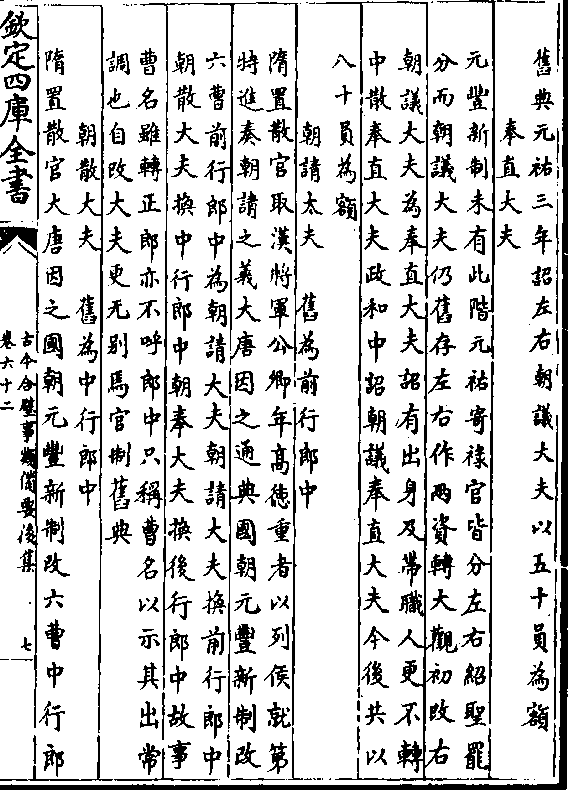 舊典元祐三年詔左右朝議大夫以五十員為額
奉直大夫
元豐新制未有此階元祐寄祿官皆分左右紹聖罷
分而朝議大夫仍舊存左右作兩資轉大觀初改右
朝議大夫為奉直大夫詔有出身及帶職人更不轉
中散奉直大夫政和中詔朝議奉直大夫今後共以
八十員為額
朝請大夫 舊為前行郎中
隋置散官取漢將軍公卿年高徳重者以列侯就第
特進奏朝請之義大唐因之通典國朝元豐新制改
六曹前行郎中為朝請大夫朝請大夫換前行郎中
朝散大夫換中行郎中朝奉大夫換後行郎中故事
曹名雖轉正郎亦不呼郎中只稱曹名以示其出常
調也自改大夫更无别焉官制舊典
朝散大夫 舊為中行郎中
隋置散官大唐因之國朝元豐新制改六曹中行郎
欽定四庫全書
古今合璧事類備要後集
卷六十二
七